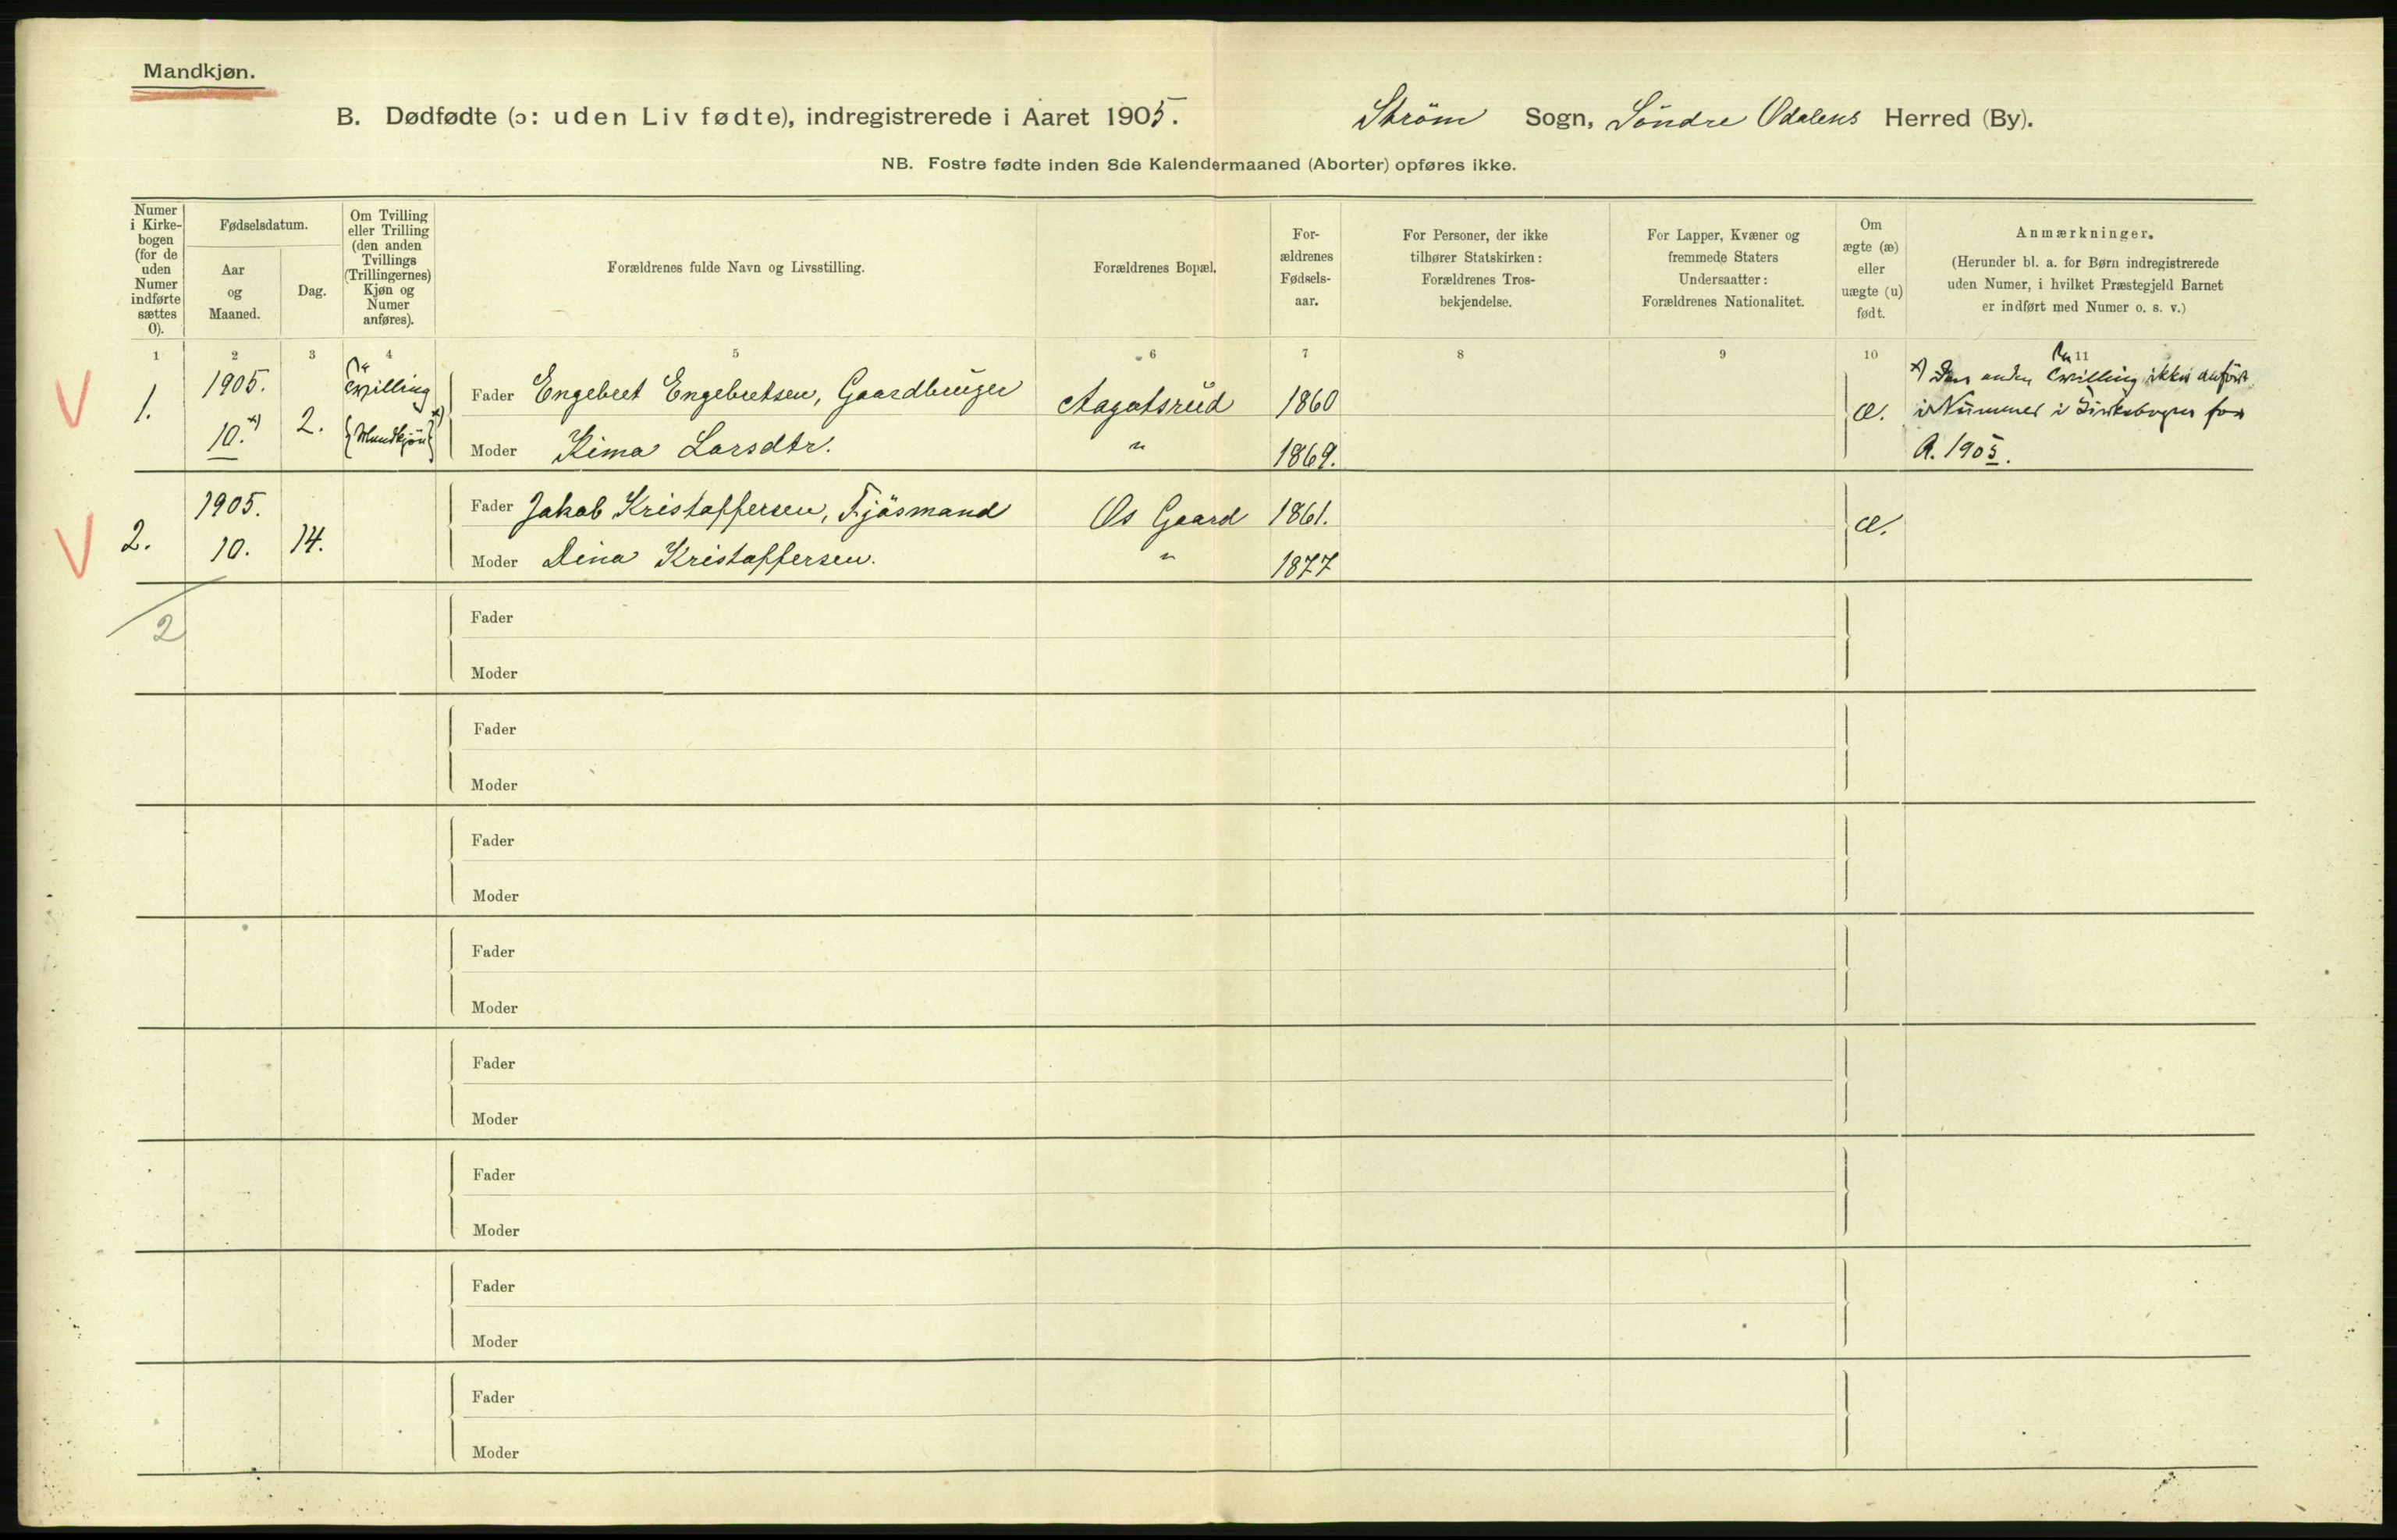 Mandkjøn.
B. Dødfødte (ɔ: uden Liv fødte), indregistrerede i Aaret 1905. Strøm Sogn, Söndre Odalens Herred (By).
NB. Fostre fødte inden 8de Kalendermaaned (Aborter) opføres ikke.
Numer
i Kirke-
bogen
(for de
uden
Numer
indførte
sættes
0).
Fødselsdatum.
Aar
og
Maaned.
Dag.
Om Tvilling
eller Trilling
(den anden
Tvillings
(Trillingernes)
Kjøn og
Numer
anføres).
Forældrenes fulde Navn og Livsstilling.
Forældrenes Bopæl.
For-
ældrenes
Fødsels-
aar.
For Personer, der ikke
tilhører Statskirken:
Forældrenes Tros-
bekjendelse.
For Lapper, Kvæner og
fremmede Staters
Undersaatter:
Forældrenes Nationalitet.
Om
ægte (æ)
eller
uægte (u)
født.
Anmærkninger.
(Herunder bl. a. for Børn indregistrerede
uden Numer, i hvilket Præstegjeld Barnet
er indført med Numer o. s. v.)
1 2 3 4 5 6 7 8 9 10 11
1. 1905. 10. x) 2. Tvilling {Mandkjön} x)
Fader Engebret Engebretsen, Gaardbruger Aagotsrud 1860 æ.
Moder Kima Larsdtr. " 1869.
x) Den anden Tvilling ikke anført
i Nummer i Kirkebogen for
A. 1905.
2. 1905. 10. 14.
Fader Jakob Kristoffersen, Fjösmand Os Gaard 1861. æ.
Moder Dina Kristoffersen. " 1877
2
Fader
Moder
Fader
Moder
Fader
Moder
Fader
Moder
Fader
Moder
Fader
Moder
Fader
Moder
Fader
Moder